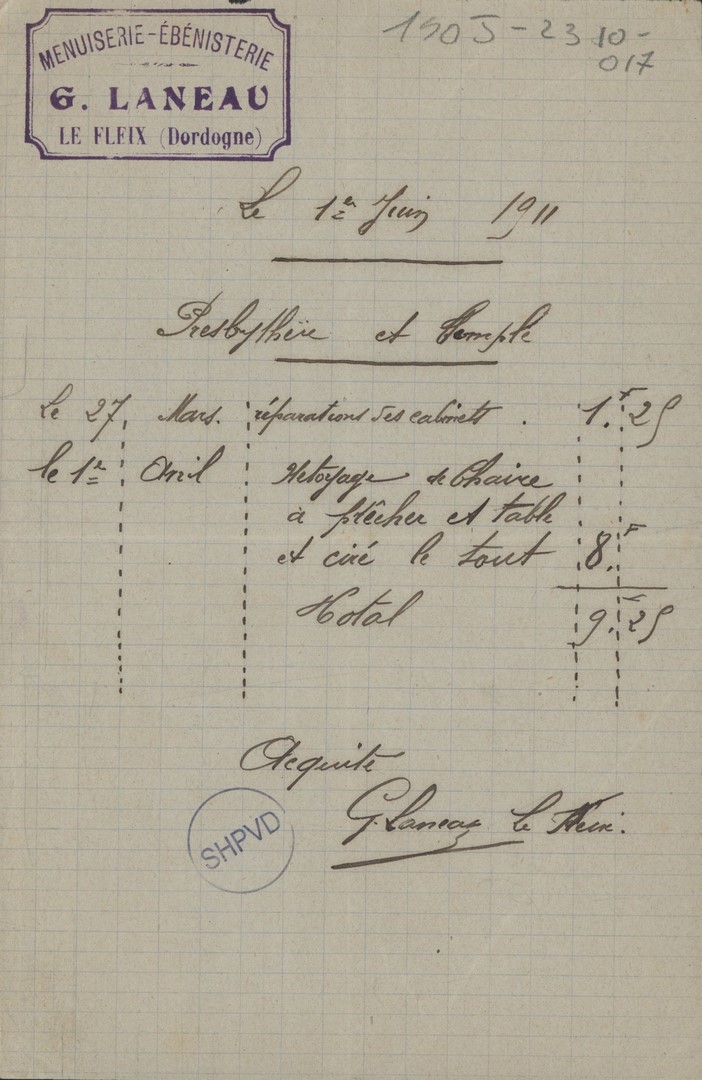 MENUISERIE-ÉBÉNISTERIE
G. LANEAU
LE FLEIX (Dordogne)
150J-2310-
017
Le 1er Juin 1911
Presbythère et Temple
Le 27 Mars. réparations des cabinets. 1.F 25
le 1er Avril Netoyage de Chaire
à prêcher et table
et ciré le tout 8.F
Total 9.F 25
Acquité
G. Laneau Le Fleix.
SHPVD